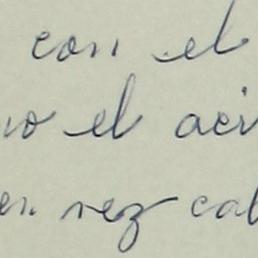 con el
no el aci
en vez cal